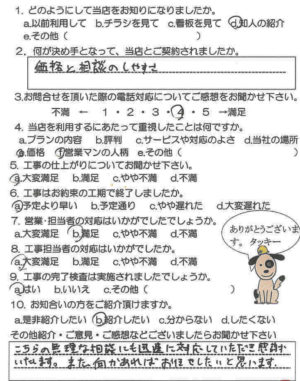 1. どのようにして当店をお知りになりましたか。
a.以前利用して b.チラシを見て c.看板を見て d.知人の紹介
e.その他（ ）
2. 何が決め手となって、当店とご契約されましたか。
価格と相談のしやすさ
3.お問合せを頂いた際の電話対応についてご感想をお聞かせ下さい。
不満 ← 1・2・3・4・5 →満足
4. 当店を利用するにあたって重視したことは何ですか。
a.プランの内容 b.評判 c.サービスや対応のよさ d.当社の場所
e.価格 f.営業マンの人柄 e.その他（ ）
5. 工事の仕上がりについてお聞かせ下さい。
a.大変満足 b.満足 c.やや不満 d.不満
6. 工事はお約束の工期で終了しましたか。
a.予定より早い b.予定通り c.やや遅れた d.大変遅れた
7. 営業・担当者の対応はいかがでしたでしょうか。
a.大変満足 b.満足 c.やや不満 d.不満
8. 工事担当者の対応はいかがでしたか。
a.大変満足 b.満足 c.やや不満 d.不満
9. 工事の完了検査は実施されましたでしょうか。
a.はい b.いいえ c.その他（ ）
10. お知合いの方をご紹介頂けますか。
a.是非紹介したい b.紹介したい c.分からない d.したくない
その他紹介・ご意見・ご感想などございましたらお聞かせ下さい
こちらの無理な相談にも迅速に対応していただき感謝して
います。また何かあればお任せしたいと思います。
ありがとうございます。タッキー